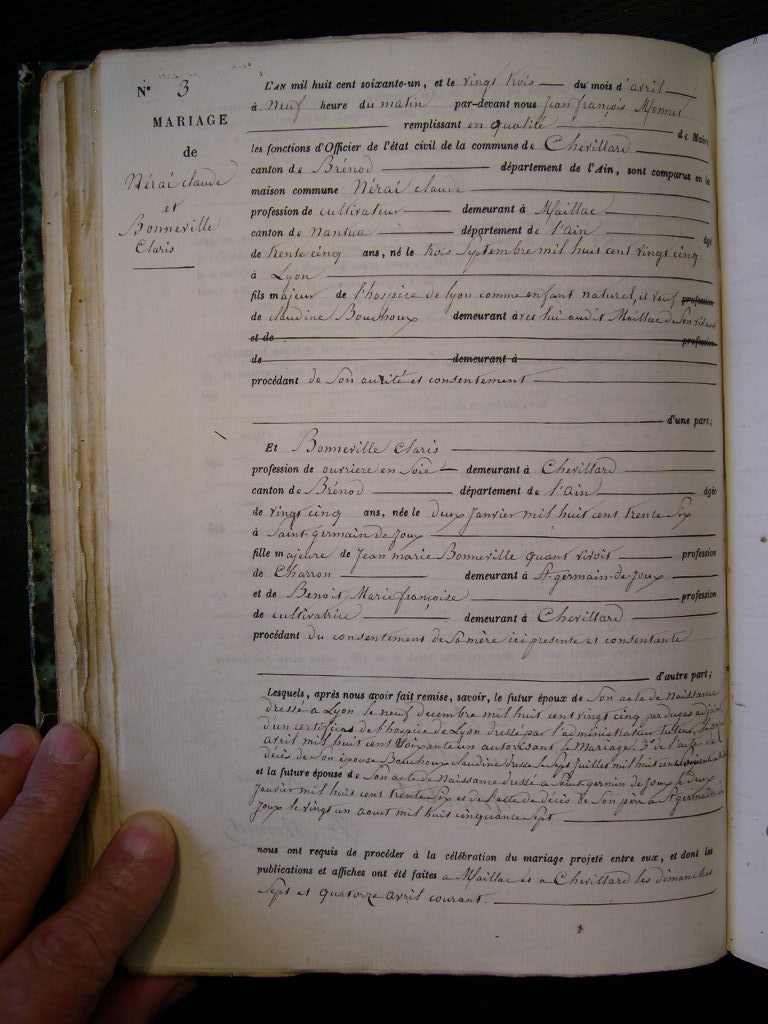 N° 3
MARIAGE
de
Nérai claude
et
Bonneville
Claris
L'AN mil huit cent soixante-un, et le vingt trois du mois d'avril
à Neuf heure du matin par-devant nous jean françois Monnet
remplissant en qualité de Maire
les fonctions d'Officier de l'état civil de la commune de Chevillard
canton de Brénod département de l'Ain, sont comparus en la
maison commune Nérai claude
profession de cultivateur demeurant à Maillac
canton de nantua département de l'ain âgé
de trente cinq ans, né le trois Septembre mil huit cent vingt cinq
à Lyon
fils majeur de l'hospice de lyon comme enfant naturel, et veuf profession
de claudine Bouchoux demeurant avec lui audit Maillac de Son vivant
et de profession
de demeurant à
procédant de Son autité et consentement
d'une part;
Et Bonneville Claris
profession de ouvriere en Soie demeurant à Chevillard
canton de Brénod département de l'ain âgée
de vingt cinq ans, née le deux janvier mil huit cent trente Six
à Saint germain de joux
fille majeure de jean marie Bonneville quant vivoit profession
de Charron demeurant à St germain-de-joux
et de Benoit Marie françoise profession
de cultivatrice demeurant à Chevillard
procédant du consentement de Sa mère ici presente et consentante
d'autre part;
Lesquels, après nous avoir fait remise, savoir, le futur époux de Son acte de Naissance
dressé a Lyon le neuf decembre mil huit cent vingt cinq par dugas adjoint
d'un certificat de l'hospice de Lyon dressé par l'administrateur tuteur, le
avril mil huit cent Soixante un autorisant le Mariage, 3° de l'acte de
décès de Son épouse Bouchoux claudine dressé le Sept juillet mil huit cent
et la future épouse de Son acte de Naissance dressé a Saint-germin de joux le Deux
janvier mil huit cent trente Six et de l'acte de décès de Son père a St germain de
joux le vingt un aout mil huit cinquante Sept
nous ont requis de procéder à la célébration du mariage projeté entre eux, et dont les
publications et affiches ont été faites a Maillac et a Chevillard les dimanches
Sept et quatorze avril courant